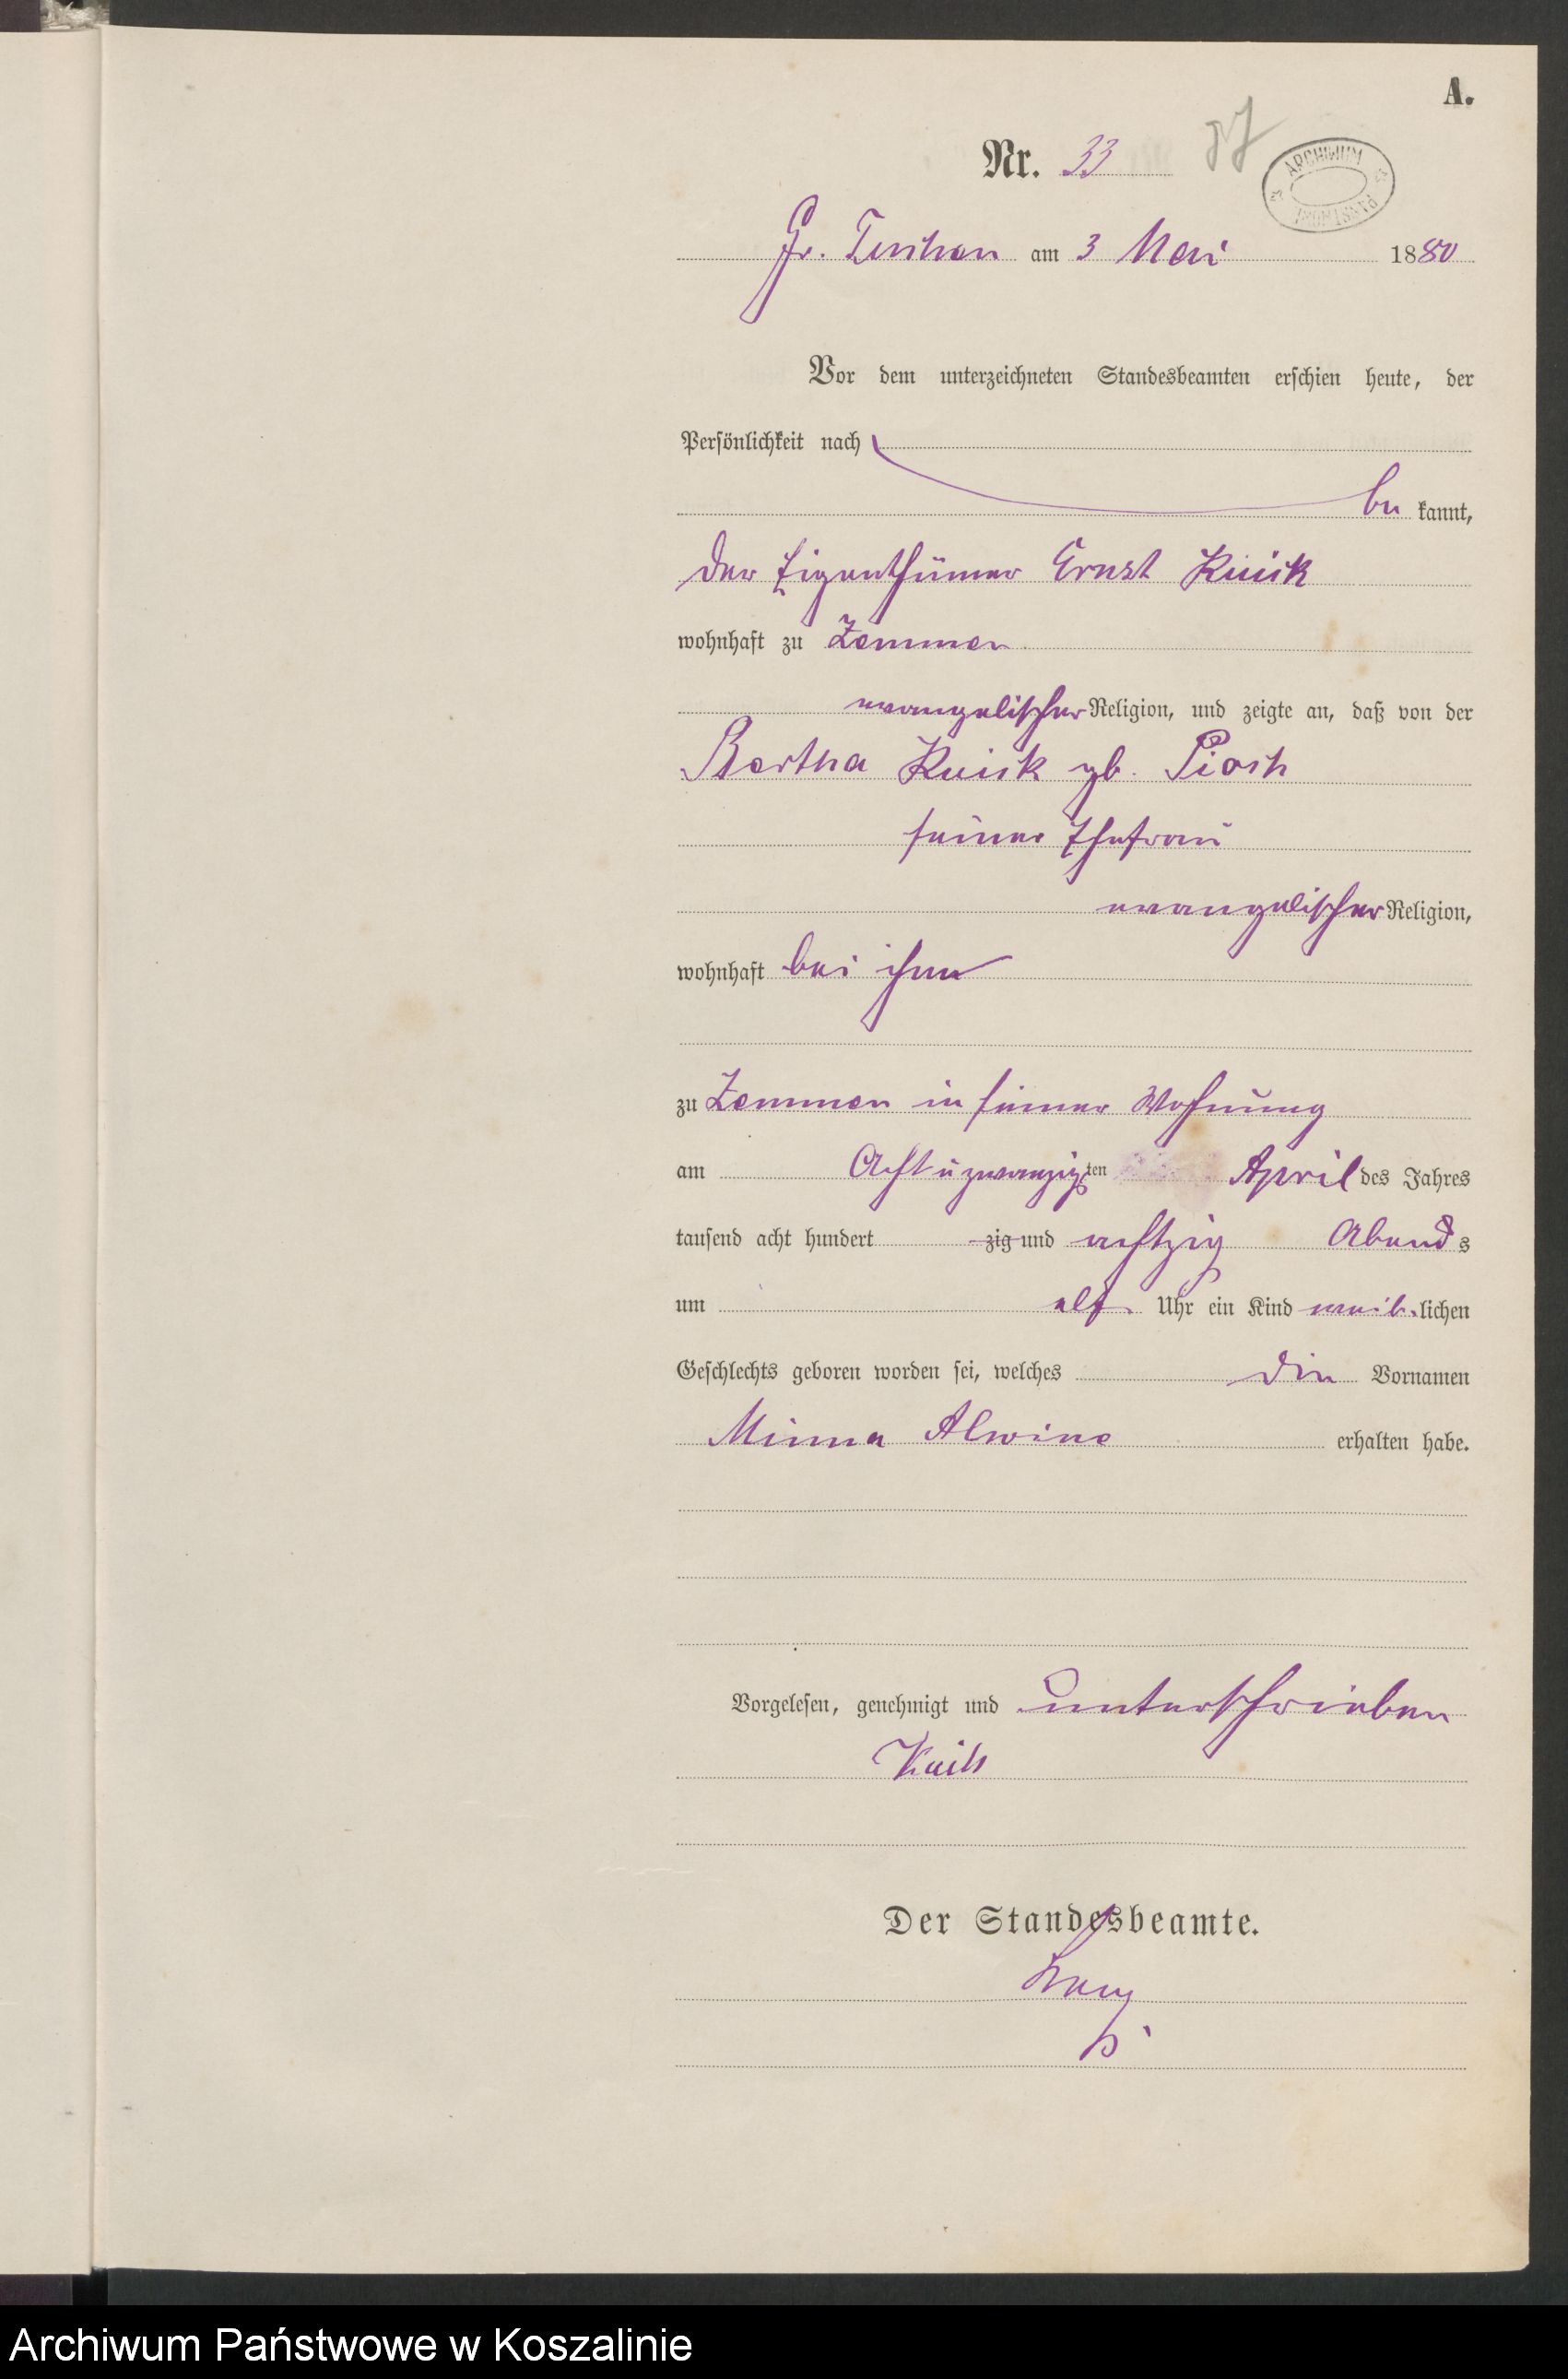 A.
Nr. 33 87
ARCHIWUM PAŃSTWOWE
Gr. Tuchen am 3 Mai 1880
Vor dem unterzeichneten Standesbeamten erschien heute, der
Persönlichkeit nach
be kannt,
der Eigenthümer Ernst
wohnhaft zu Zemmen
evangelischer Religion, und zeigte an, daß von der
Bertha gb.
seiner Ehefrau
evangelischer Religion,
wohnhaft bei ihm
zu Zemmen in seiner Wohnung
am Acht u zwanzigsten April des Jahres
tausend acht hundert zig und achtzig Abends
um elf Uhr ein Kind weiblichen
Geschlechts geboren worden sei, welches die Vornamen
Minna Alwine erhalten habe.
Vorgelesen, genehmigt und unterschrieben
Der Standesbeamte.
Archiwum Państwowe w Koszalinie